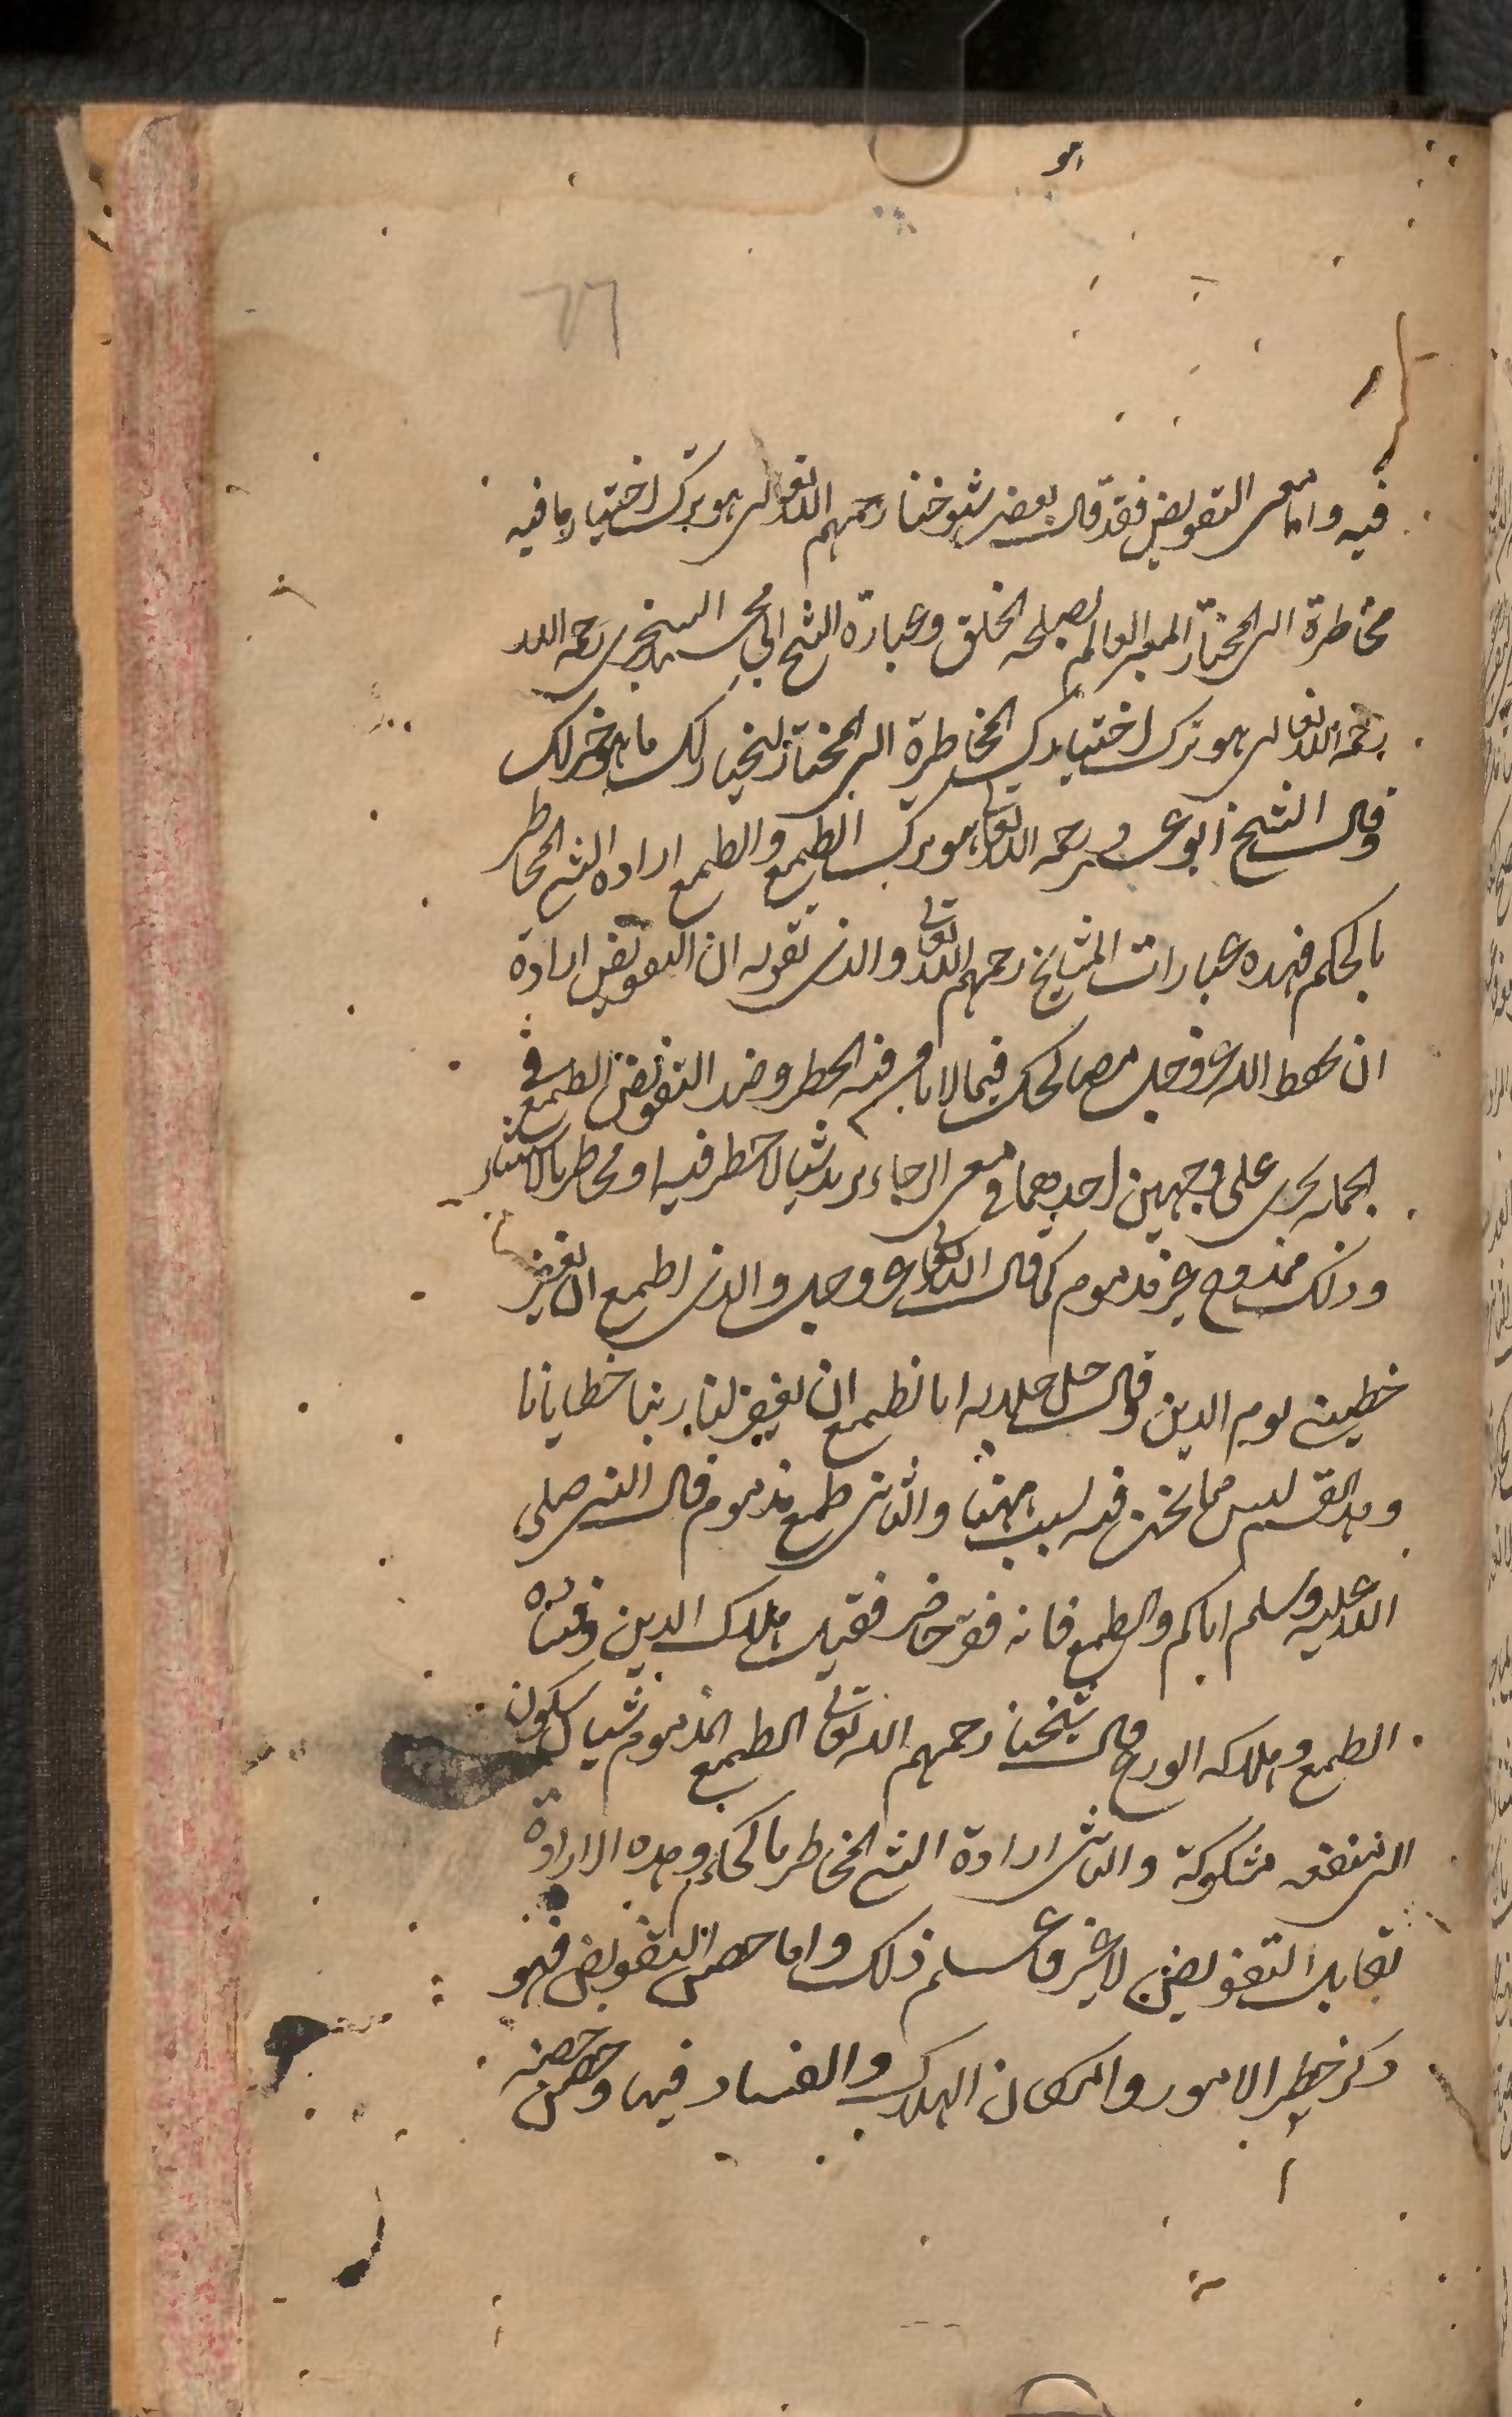 هو
٦٦
فيه واما معنى التفويض فقد قال بعض شيوخنا رحمهم الله تعالى هو ترك اختيار ما فيه
مخاطرة الى المختار المدبر العالم لمصلحة الخلق وعبارة الشيخ ابى محمد السنجرى رحمه الله
رحمه الله تعالى هو ترك اختيارك المخاطرة الى المختار ليختار لك ما هو خير لك
وقال الشيخ ابو عمر رحمه الله تعالى هو ترك الطمع والطمع ارادة الشئ المخاطر
بالحكم فهذه عبارات المشايخ رحمهم الله تعالى والذى نقوله ان التفويض ارادة
ان يحفظ الله عز وجل مصالحك فيما لا تامن فيه الخطر وضد التفويض الطمع فى
الجملة يجرى على وجهين احدهما فى معنى الرجاء يريد شيا لا خطر فيه او مخاطر بالاستثناء
وذلك ممدوح غير مذموم كما قال الله تعالى عز وجل والذى اطمع ان يغفر
خطيئتى يوم الدين وقال جل جلاله انا نطمع ان يغفر لنا ربنا خطايانا
وهذا القسم ليس مما نحن فيه لسبب ههنا والثانى طمع مذموم قال النبى صلى
الله عليه وسلم اياكم والطمع فانه فقر حاضر فقيل هلاك الدين وفساده
الطمع وملاكه الورع قال شيخنا رحمهم الله تعالى الطمع المذموم شيان سكون
الى منفعة مشكوكة والثانى ارادة الشئ المخاطر بالحكم وهذه الارادة
تقابل التفويض لا غير فاعلم ذلك واما حصن التفويض فهو
ذكر خطر الامور وامكان الهلاك والفساد فيها وحصن حصنه